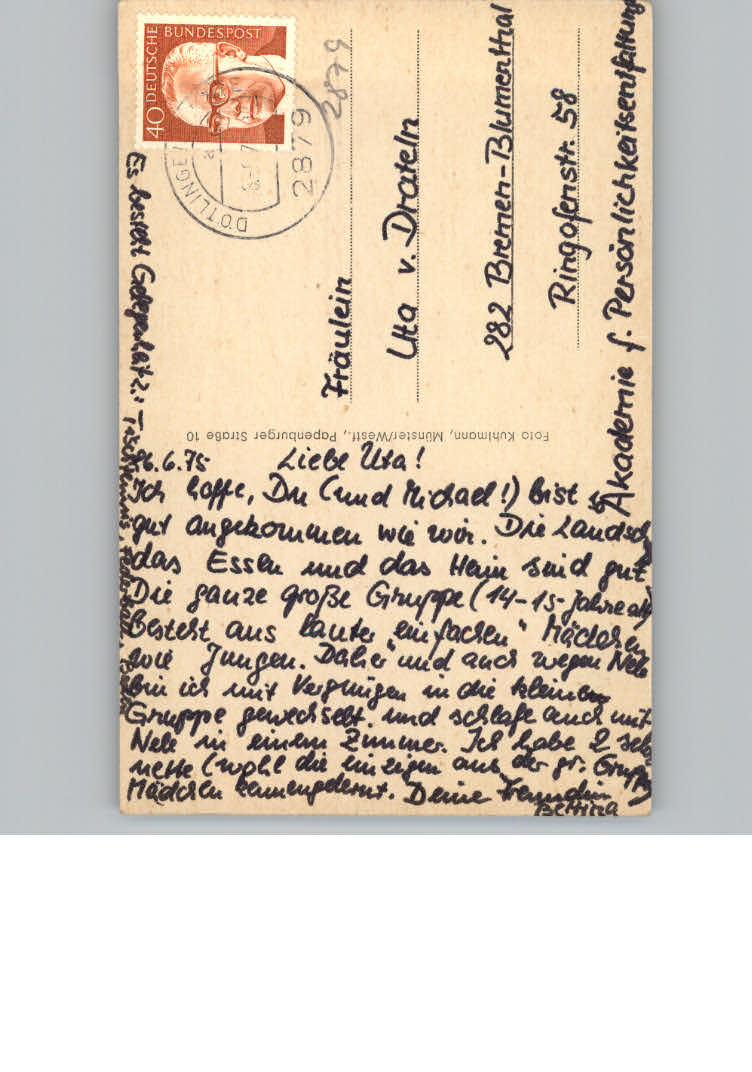 DEUTSCHE BUNDESPOST
40
2879
DÖTLINGE
2879
Fräulein
Uta v. Drateln
282 Bremen-Blumenthal
Ringofenstr. 58
Akademie f. Persönlichkeitsentfaltung
Foto Kuhlmann, Münster/Westf., Papenburger Straße 10
26.6.75 Liebe Uta!
Ich hoffe, Du (und Michael!) bist so
gut angekommen wie wir. Die Landsch
das Essen und das Heim sind gut
Die ganze große Gruppe (14-15-Jahre alt)
besteht aus lauter „einfachen" Mädchen
wie Jungen. Daher und auch wegen Nele
bin ich mit Vergnügen in die kleinere
Gruppe gewechselt und schlafe auch mit
Nele in einem Zimmer. Ich habe 2 sehr
nette (wohl die einzigen aus der gr. Gruppe)
Mädchen kennengelernt. Deine Freundin
Bettina
Es besteht Gelegenheit z.: